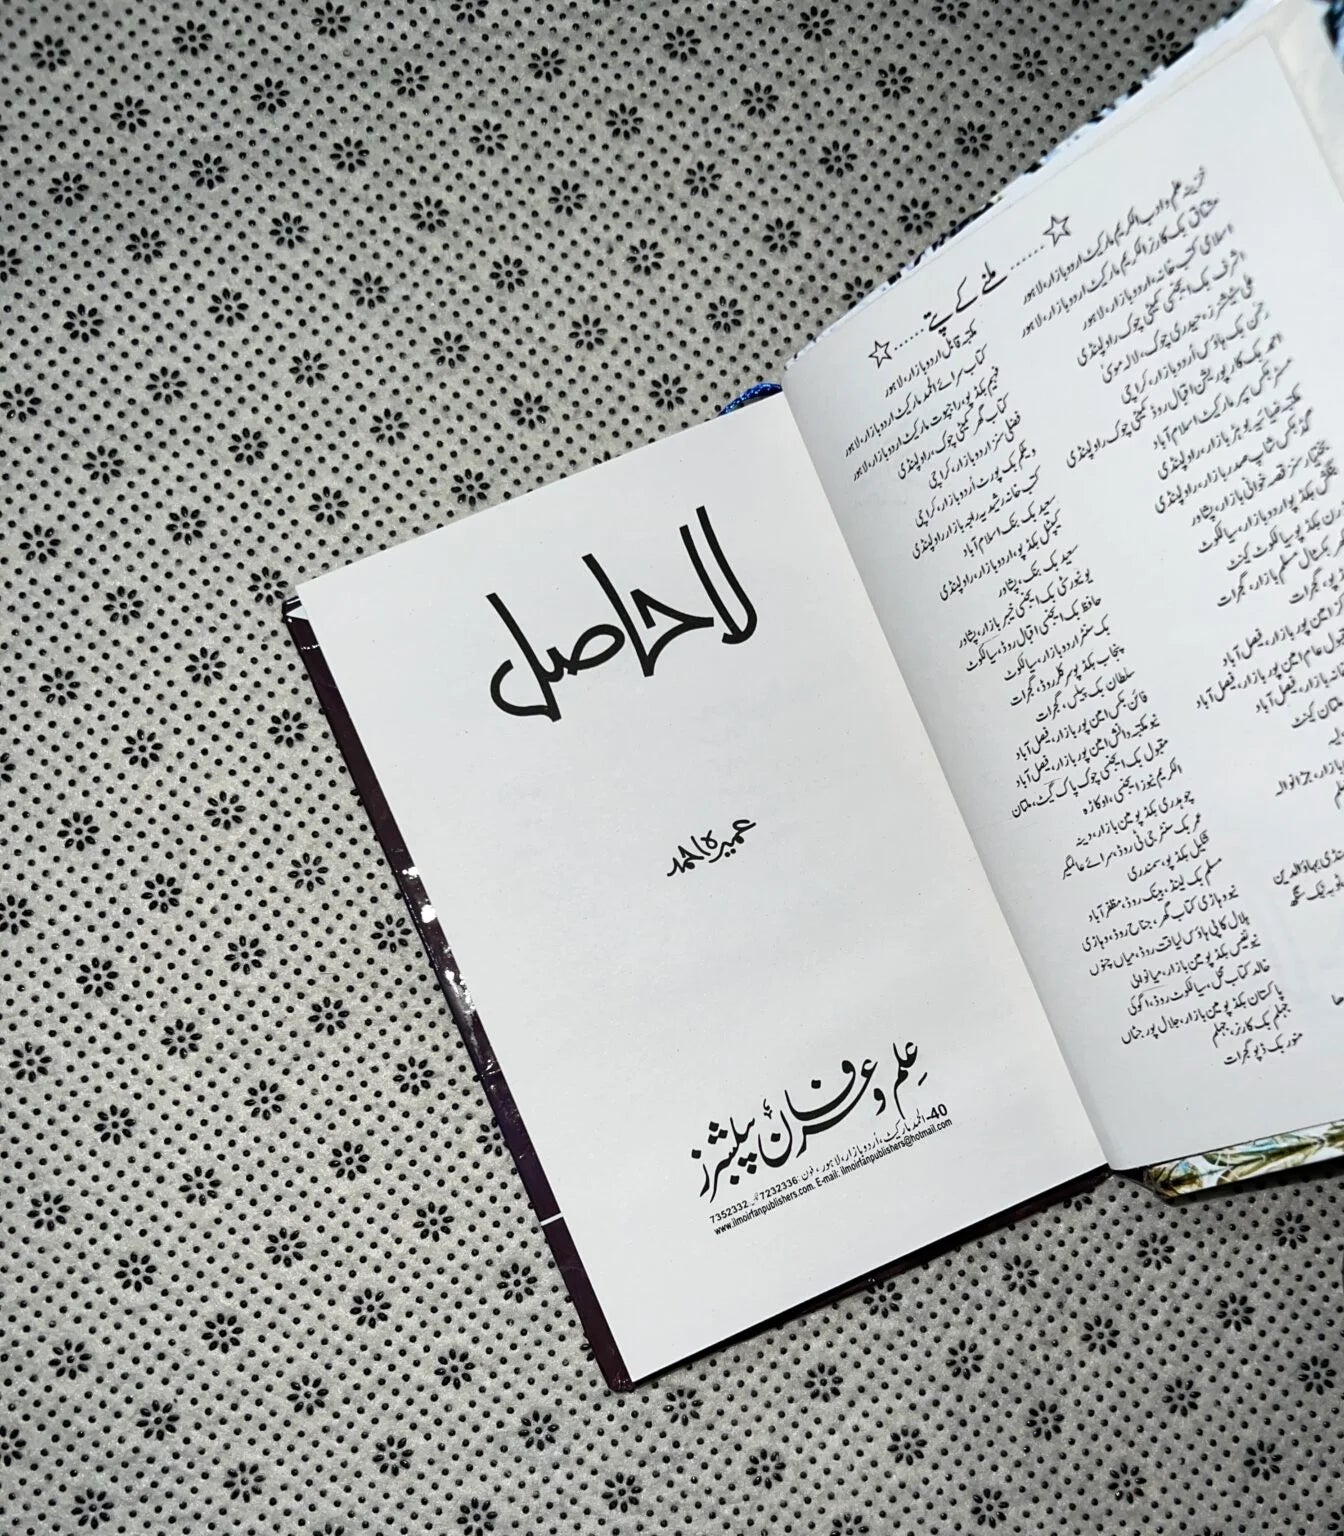 لاحاصل
عمیرہ احمد
علم و عرفان پبلشرز
40-الحمد مارکیٹ، اُردو بازار، لاہور، فون: 7232336 فیکس: 7352332
www.ilmoirfanpublishers.com. E-mail: ilmoirfanpublishers@hotmail.com
☆......ملنے کے پتے......☆
خزینہ علم و ادب الکریم مارکیٹ اردو بازار، لاہور
مشتاق بک کارنر الکریم مارکیٹ اردو بازار، لاہور
اسلامی کتب خانہ، اردو بازار، لاہور
اشرف بک ایجنسی کمیٹی چوک راولپنڈی
علی پبلشرز، حیدری چوک، لالہ موسیٰ
رحمن بک ہاؤس اُردو بازار، کراچی
احمد بک کارپوریشن اقبال روڈ کمیٹی چوک راولپنڈی
مسٹر بکس سپر مارکیٹ اسلام آباد
مکتبہ ضیائیہ بوہڑ بازار، راولپنڈی
بکس شاپ صدر بازار، راولپنڈی
سنز قصہ خوانی بازار، پشاور
بنگش بکڈپو اردو بازار، سیالکوٹ
ماڈرن بکڈپو سیالکوٹ کینٹ
بکسٹال مسلم بازار، گجرات
گجرات
امین پور بازار، فیصل آباد
امین پور بازار، فیصل آباد
بازار، فیصل آباد
ملتان کینٹ
بازار، جڑانوالہ
منڈی بہاؤالدین
ٹوبہ ٹیک سنگھ
مکتبہ قائل اردو بازار، لاہور
کتاب سرائے الحمد مارکیٹ اردو بازار، لاہور
فہیم بکڈپو، راجپوت مارکیٹ اردو بازار، لاہور
کتاب گھر کمیٹی چوک، راولپنڈی
فضلی سنز اردو بازار، کراچی
ویلکم بک پورٹ اُردو بازار، کراچی
کتب خانہ رشیدیہ راجہ بازار راولپنڈی
سعید بک بنک اسلام آباد
کیپٹل بکڈپو، اردو بازار، راولپنڈی
سعید بک بنک، پشاور
یونیورسٹی بک ایجنسی خیبر بازار، پشاور
حافظ بک ایجنسی اقبال روڈ، سیالکوٹ
بک سنٹر اردو بازار، سیالکوٹ
پنجاب بکڈپو سرکلر روڈ، گجرات
سلطان بک پیلس، گجرات
فائن بکس امین پور بازار، فیصل آباد
نیو مکتبہ دانش امین پور بازار، فیصل آباد
مقبول بک ایجنسی چوک پاک گیٹ، ملتان
الکریم نیوز ایجنسی، اوکاڑہ
چوہدری بکڈپو مین بازار، دینہ
عمر بک سنٹر جی ٹی روڈ، سرائے عالمگیر
شکیل بکڈپو، سمندری
مسلم بک لینڈ، بینک روڈ، مظفر آباد
نیو وہاڑی کتاب گھر، جناح روڈ، وہاڑی
بلال کاپی ہاؤس لیاقت روڈ، میاں چنوں
نیو نفیس بکڈپو مین بازار، میانوالی
خالد کتاب محل، سیالکوٹ روڈ، اگوکی
پاکستان بکڈپو مین بازار، جلال پور جٹاں
جہلم بک کارنر، جہلم
منور بک ڈپو گجرات